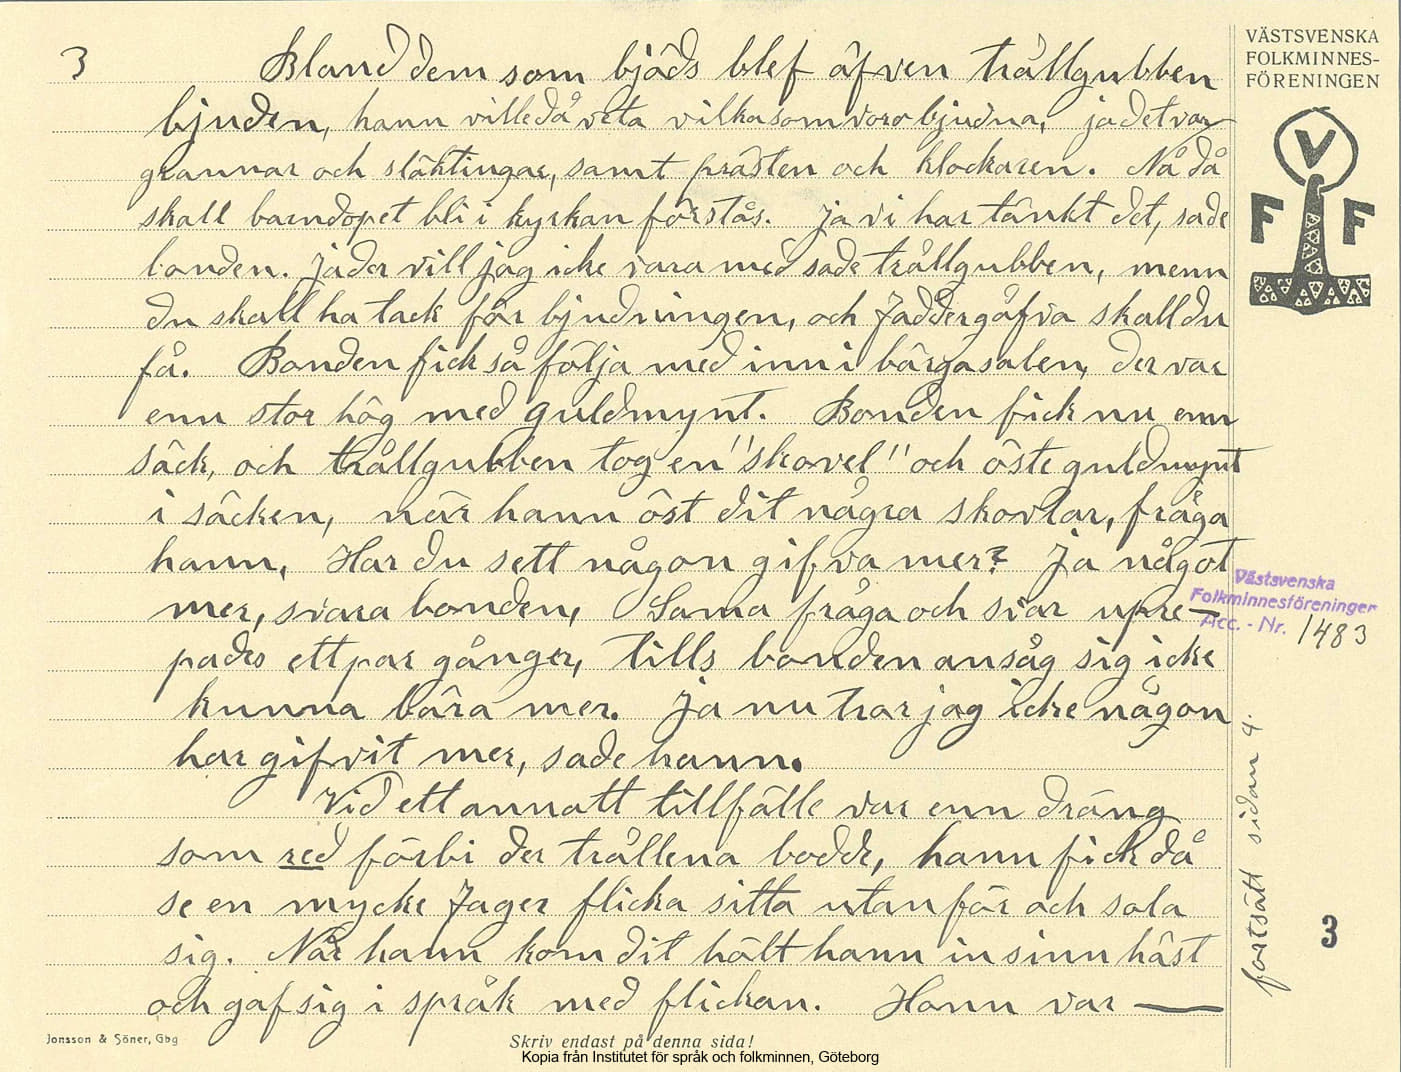 3
Bland dem som bjöds blef äfven trållgubben
bjuden, hann ville då veta vilka som voro bjudna, ja det var
grannar och släktingar, samt prästen och klockaren. Nå då
skall barndopet bli i kyrkan förstås. Ja vi har tänkt det, sade
bonden. Ja der vill jag icke vara med sade trållgubben, menn
du skall ha tack för bjudningen, och Faddergåfva skall du
få. Bonden fick så följa med inn i bärgasalen, der var
enn stor hög med guldmynt. Bonden fick nu enn
säck, och trållgubben tog en "skovel" och öste guldmynt
i säcken, när hann öst dit några skovlar, fråga
hann, Har du sett någon gifva mer? Ja något
mer, svara bonden, Sama fråga och svar upre-
pades ett par gånger, tills bonden ansåg sig icke
kunna bära mer. Ja nu tror jag icke någon
har gifvit mer, sade hann.
Vid ett annatt tillfälle var enn dräng
som red förbi der trållena bodde, hann fick då
se en mycke Fager flicka sitta utanför och sola
sig. När hann kom dit hölt hann in sinn häst
och gaf sig i språk med flickan. Hann var —
VÄSTSVENSKA
FOLKMINNES-
FÖRENINGEN
V
F F
Västsvenska
Folkminnesföreningen
Acc. - Nr. 1483
fortsätt sidan 4.
3
Jonsson & Söner, Gbg
Skriv endast på denna sida!
Kopia från Institutet för språk och folkminnen, Göteborg